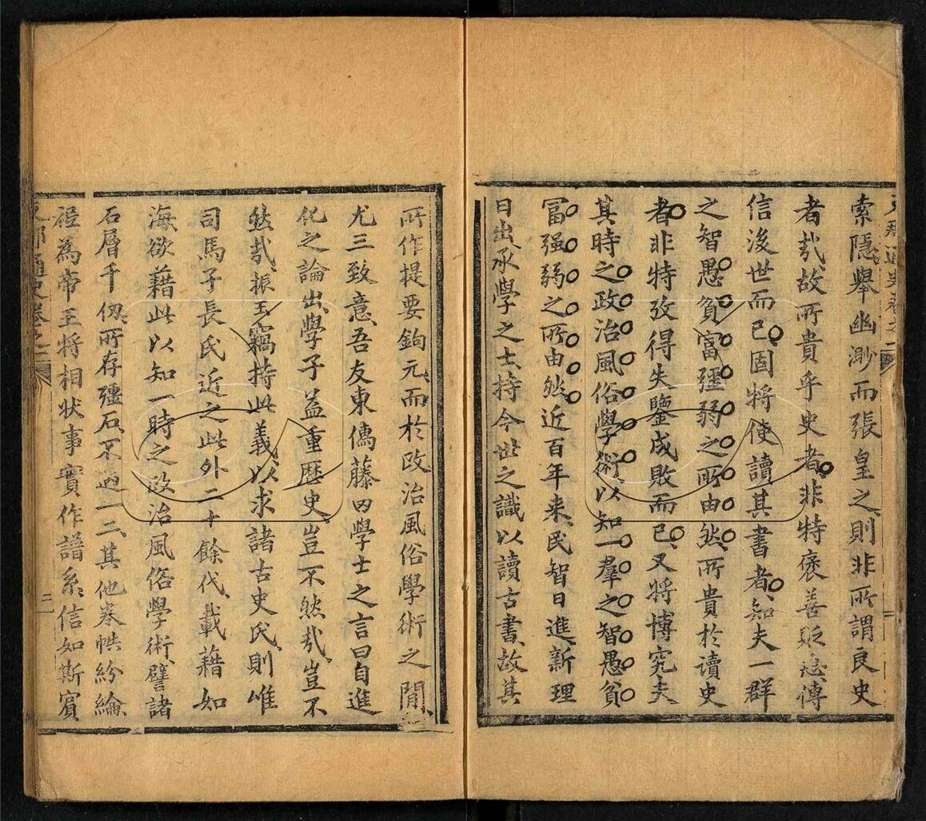 索隱舉幽渺而張皇之則非所謂良史
者㢤故所貴乎史者非特褒善貶惡傳
信後世而已固將使讀其書者知夫一群
之智愚貧富彊弱之所由然所貴於讀史
者非特攷得失鑒成敗而已又將博究夫
其時之政治風俗學術以知一羣之智愚貧
冨强弱之所由然近百年来民智日進新理
日出承學之士持今世之識以讀古書故其
所作提要鉤元而於政治風俗學術之間
尤三致意吾友東儔藤田學士之言曰自進
化之論出學子益重歴史豈不然㢤豈不
然㢤振玉竊持此義以求諸古史氏則唯
司馬子長氏近之此外二十餘代載籍如
海欲藉此以知一時之政治風俗學術譬諸
石層千仭所存殭石不過一二其他卷帙紛綸
祗為帝王将相狀事實作譜系信如斯賓
東邦通史卷之一